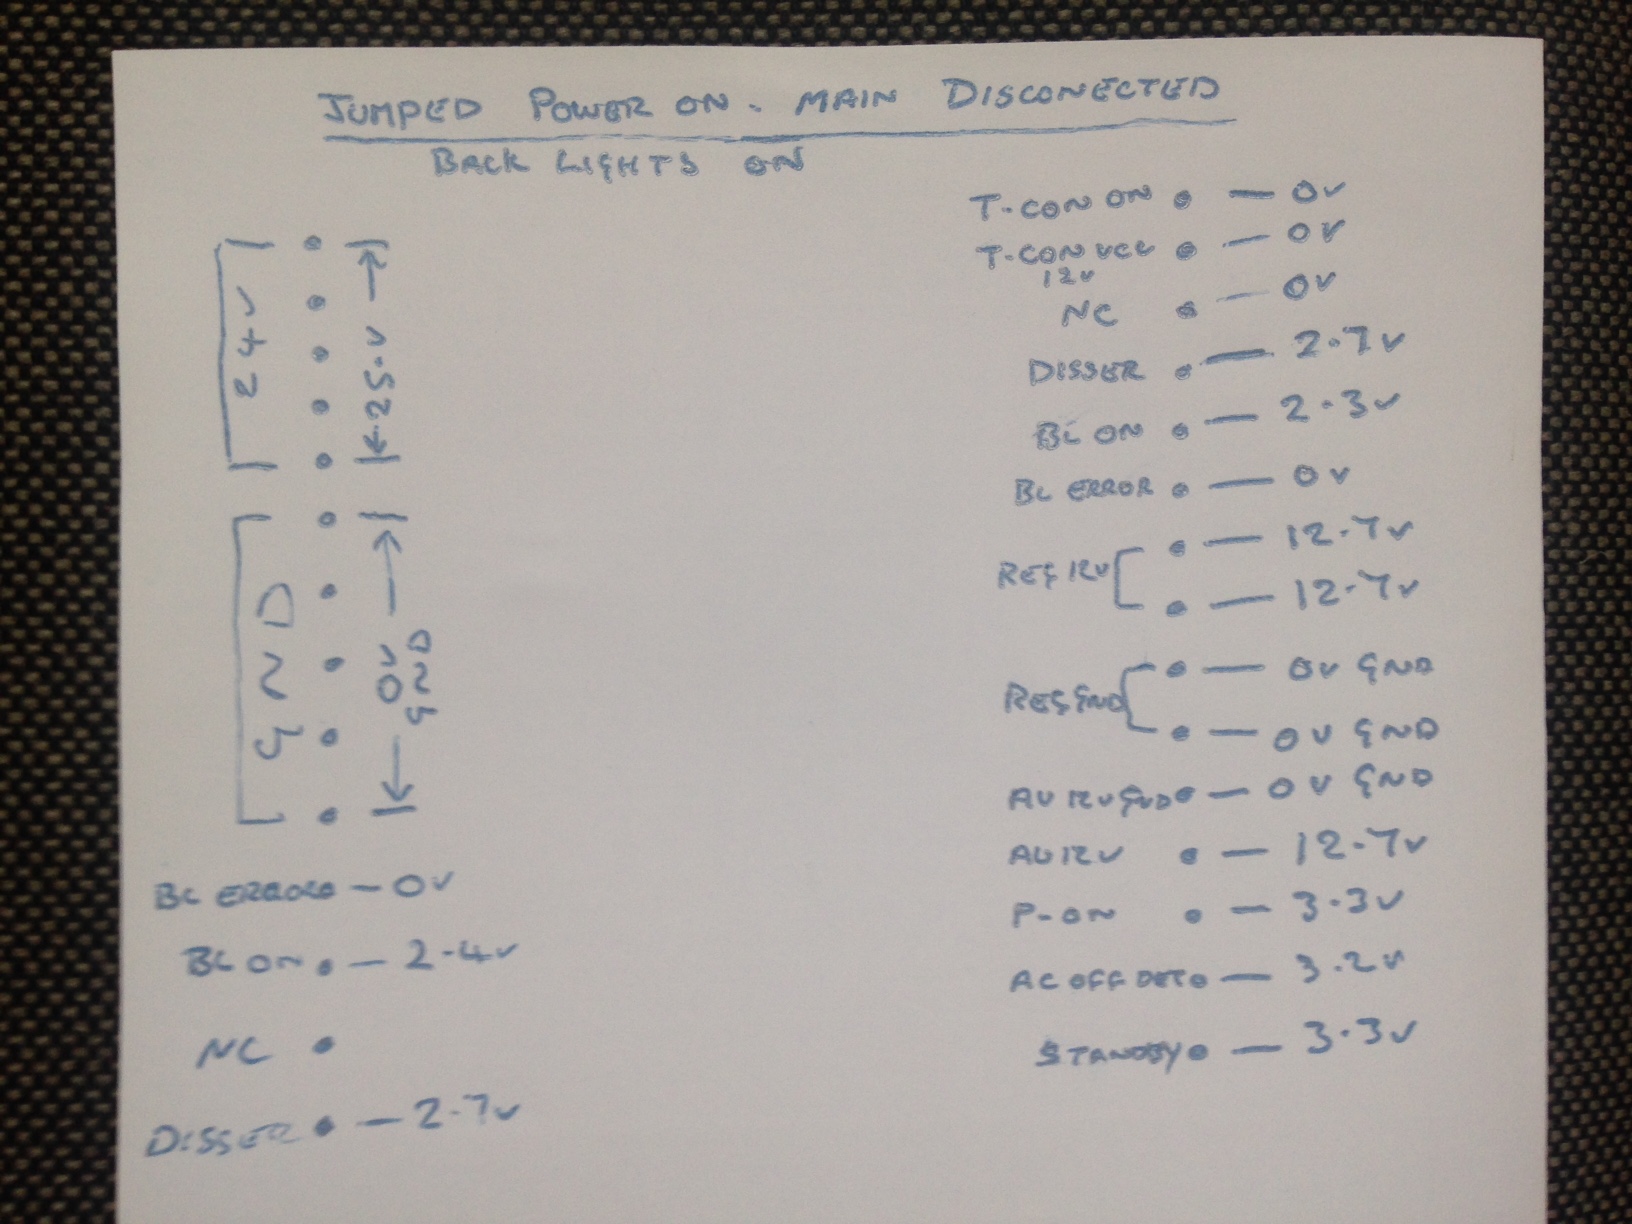 JUMPED POWER ON. MAIN DISCONECTED
BACK LIGHTS ON
24V
25.V
GND
0V
GND
BL ERROR - 0V
BL ON - 2.4V
NC
DISSER - 2.7V
T-CON ON - 0V
T-CON VCC - 0V
12V
NC - 0V
DISSER - 2.7V
BL ON - 2.3V
BL ERROR - 0V
REG 12V
12.7V
12.7V
REG GND
0V GND
0V GND
AU 12V GND - 0V GND
AU 12V - 12.7V
P-ON - 3.3V
AC OFF DET - 3.2V
STANDBY - 3.3V